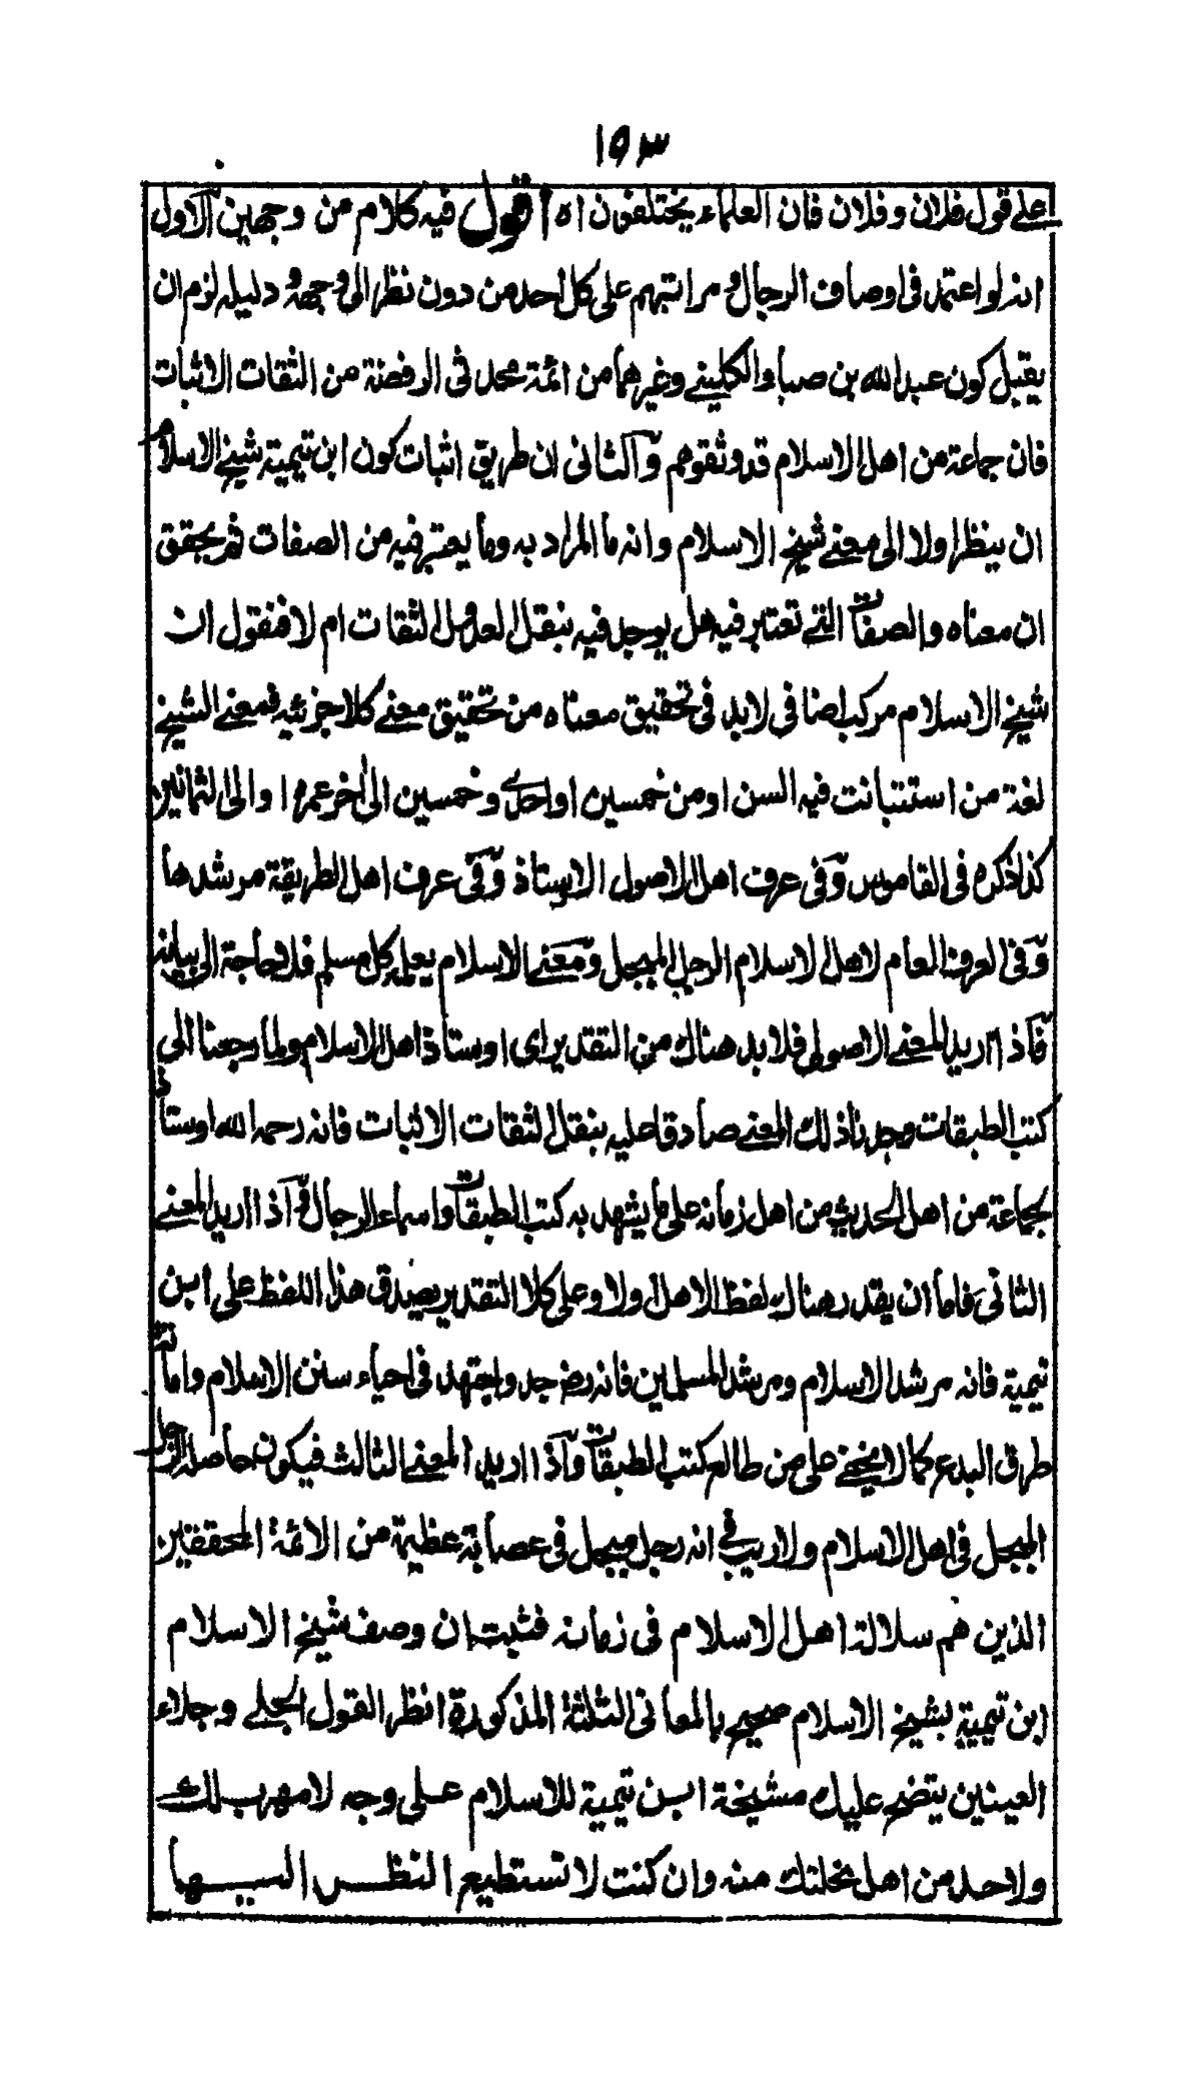 ١٥٣
على قول فلان وفلان فان العلماء يختلفون اه اقول فيه كلام من وجهين الاول
انه لو اعتمد فى اوصاف الرجال ومراتبهم على كل احد من دون نظر الى وجهه ودليله لزم ان
يقبل كون عبد الله بن صبا والكلينے وغيرهما من ائمة محدثى الرفضة من الثقات الاثبات
فان جماعة من اهل الاسلام قد وثقوهم والثانى ان طريق اثبات كون ابن تيمية شيخ الاسلام
ان ينظر اولا الى معنے شيخ الاسلام وانه ما المراد به وما يعتبر فيه من الصفات ثم يحقق
ان معناه والصفات التے تعتبر فيه هل يوجد فيه بنقل العدول الثقات ام لا فنقول ان
شيخ الاسلام مركب اضافى لابد فى تحقيق معناه من تحقيق معنے كلا جزئيه فمعنے الشيخ
لغة من استبانت فيه السن او من خمسين او احدى وخمسين الى اخر عمره او الى الثمانين
كذا ذكره فى القاموس وفى عرف اهل الاصول الاستاذ وفى عرف اهل الطريقة مرشدها
وفى العرف العام لاهل الاسلام الرجل المبجل ومعنے الاسلام يعلمه كل مسلم فلا حاجة الى بيانه
فاذ اريد المعنے الاصولى فلابد هناك من التقدير اى اوستاذ اهل الاسلام ولما رجعنا الى
كتب الطبقات وجدنا ذلك المعنے صادقا عليه بنقل الثقات الاثبات فانه رحمه الله اوستاذ
لجماعة من اهل الحديث من اهل زمانه على ما يشهد به كتب الطبقات واسماء الرجال واذا اريد المعنے
الثانى فاما ان يقدر هناك لفظ الاهل اولا وعلى كلا التقدير يصدق هذا اللفظ على ابن
تيمية فانه مرشد الاسلام ومرشد المسلمين فانه رضـ جد واجتهد فى احياء سنن الاسلام واماتة
طرق البدع كما لا يخفے على من طالع كتب الطبقات واذا اريد المعنے الثالث فيكون حاصله الرجل
المبجل فى اهل الاسلام ولا ريب فى انه رجل مبجل فى عصابة عظيمة من الائمة المحققين
الذين هم سلالة اهل الاسلام فى زمانه فثبت ان وصف شيخ الاسلام
ابن تيمية بشيخ الاسلام صحيح بالمعانى الثلثة المذكورة انظر القول الجلے وجلاء
العينين يتضح عليك مشيخة ابن تيمية للاسلام على وجه لا مهرب لك
ولاحد من اهل نحلتك منه وان كنت لا تستطيع النظر اليها